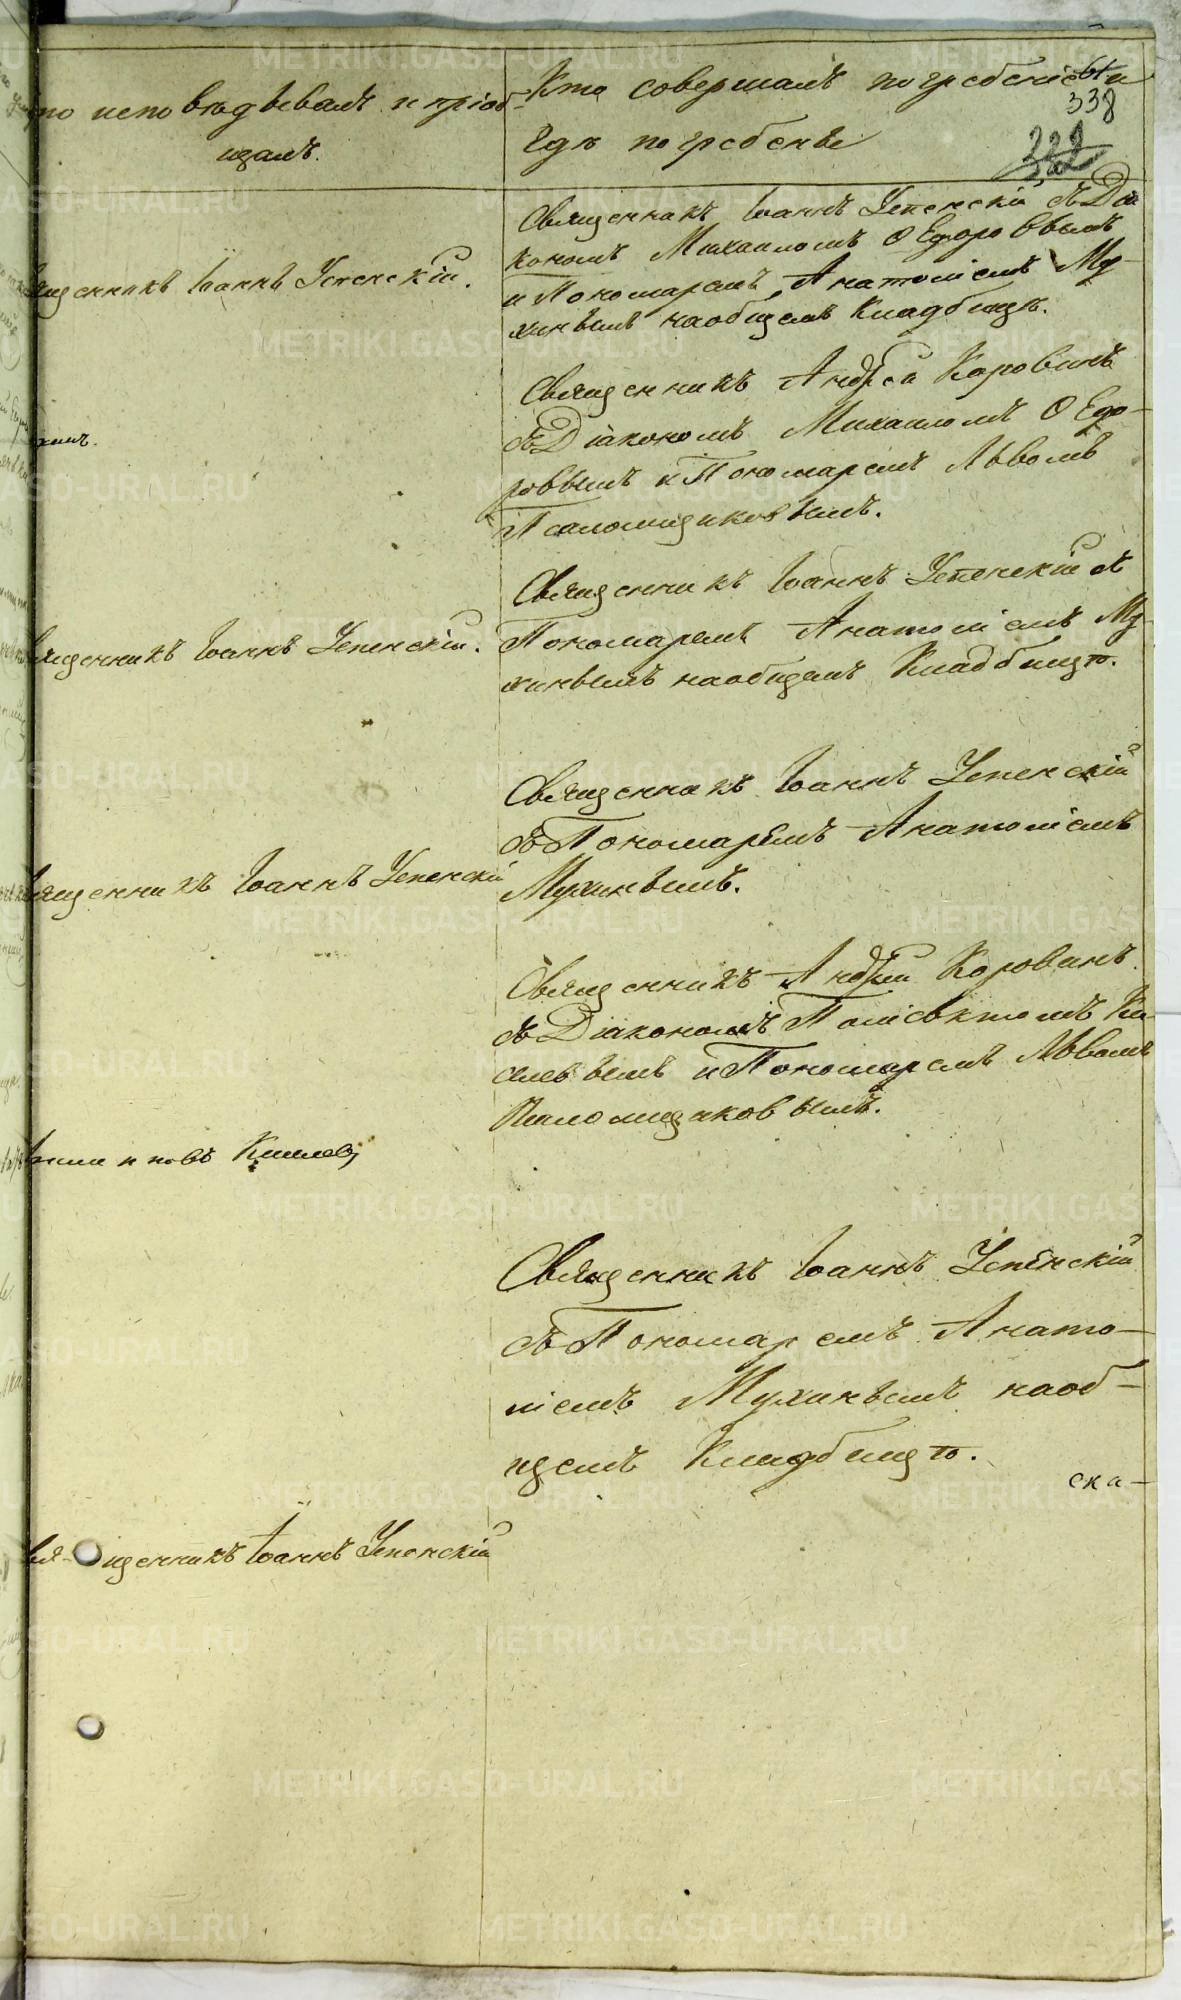 Кто исповѣдывалъ и пріоб-
щалъ.
Кто совершалъ погребеніе и
гдѣ погребены
61
338
Священникъ Іоаннъ Успенскій.
Священникъ Іоаннъ Успенскій съ Діа
кономъ Михаиломъ Ѳедоровымъ
и Пономаремъ Анатоліемъ Му-
хинымъ на общемъ Кладбищѣ.
Священникъ Андрей Коровинъ
съ Діакономъ Михаиломъ Ѳедо-
ровымъ и Пономаремъ Львомъ
Псаломщиковымъ.
Священникъ Іоаннъ Успенскій.
Священникъ Іоаннъ Успенскій съ
Пономаремъ Анатоліемъ Му-
хинымъ на общемъ Кладбищѣ.
Священникъ Іоаннъ Успенскій
Священникъ Іоаннъ Успенскій
съ Пономаремъ Анатоліемъ
Мухинымъ.
Священникъ Андрей Коровинъ
съ Діакономъ Поліевктомъ Ки-
селевымъ и Пономаремъ Львомъ
Псаломщиковымъ.
Священникъ Іоаннъ Успенскій
съ Пономаремъ Анато-
ліемъ Мухинымъ на об-
щемъ Кладбищѣ.
ска-
Свя-щенникъ Іоаннъ Успенскій
METRIKI.GASO-URAL.RU